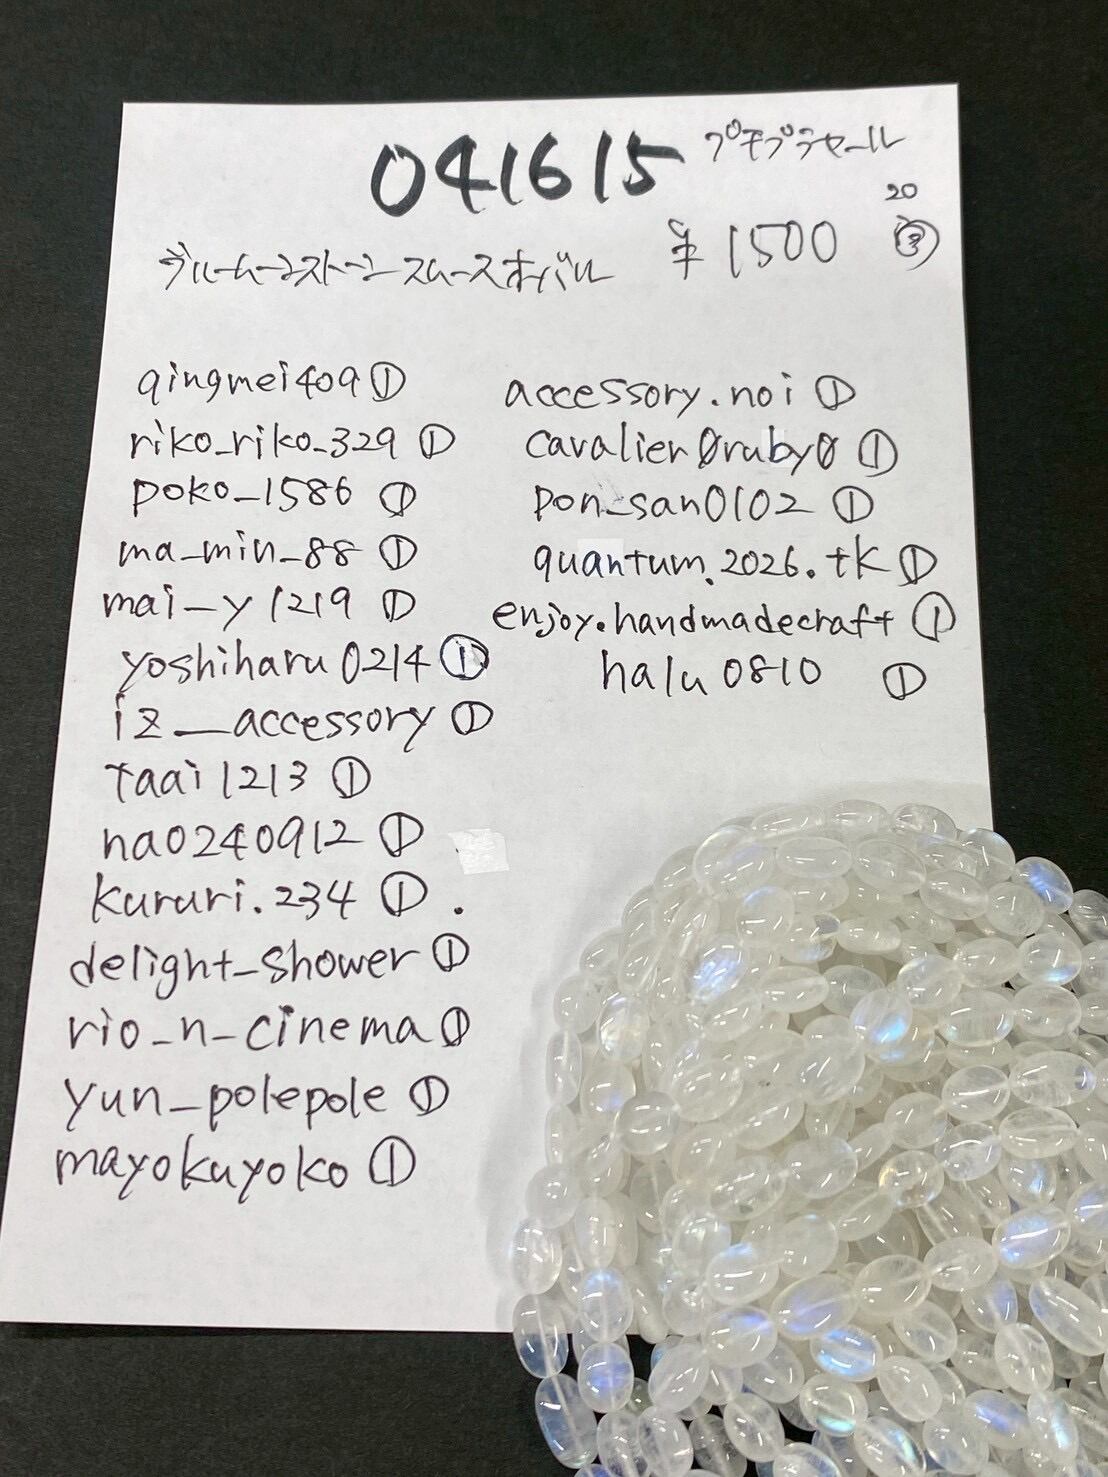 041615 プチプラセール
¥1500 20
ブルームーンストーン スムースオーバル
qingmei409 ①
riko_riko_329 ①
poko_1586 ①
ma_min_88 ①
mai_y1219 ①
yoshiharu0214 ①
iz__accessory ①
taai1213 ①
na0240912 ①
kururi.234 ①
delight_shower ①
rio_n_cinema ①
yun_polepole ①
mayokuyoko ①
accessory.noi ①
cavalier0ruby0 ①
pon_san0102 ①
quantum.2026.tk ①
enjoy.handmadecraft ①
halu0810 ①